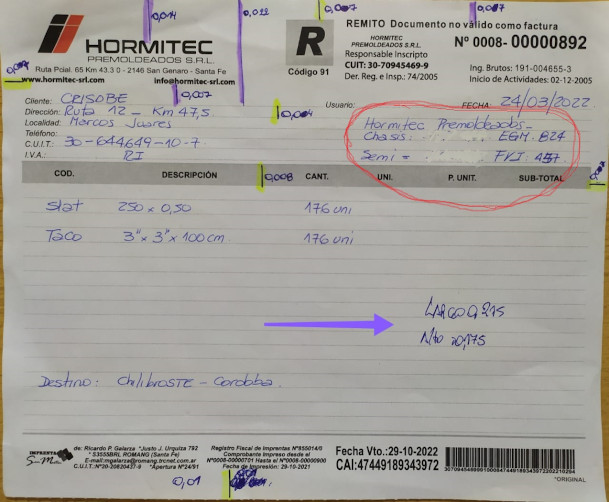 0,014
0,022
0,007
0,007
HORMITEC
PREMOLDEADOS S.R.L.
Ruta Pcial. 65 Km 43.3 0 - 2146 San Genaro - Santa Fe
www.hormitec-srl.com info@hormitec-srl.com
R
Código 91
REMITO Documento no válido como factura
HORMITEC
PREMOLDEADOS S.R.L.
Responsable Inscripto
CUIT: 30-70945469-9
Der. Reg. e Insp.: 74/2005
Nº 0008- 00000892
Ing. Brutos: 191-004655-3
Inicio de Actividades: 02-12-2005
Cliente: CRISOBE
0,007
Usuario:
FECHA 24/03/2022
Dirección: Ruta 12 - Km 47,5
0,004
Localidad: Marcos Juares
Teléfono:
C.U.I.T.: 30-644649-10-7
I.V.A.: RI
Hormitec Premoldeados-
Chasis: EGM. 824
Semi =
COD. DESCRIPCIÓN CANT. UNI. P. UNIT. SUB-TOTAL
0,008
Slat 250 x 0,50 176 uni
Taco 3"x 3"x 100cm 176 uni
Destino: Chilibroste - Cordoba.
IMPRENTA
San Martín
de: Ricardo P. Galarza *Justo J. Urquiza 792
* S3555BRL ROMANG (Santa Fe)
E-mail:mgalarza@romang.trcnet.com.ar
C.U.I.T.:Nº20-20820437-8 *Apertura Nº24/91
Registro Fiscal de Imprentas Nº855014/0
Comprobante Impreso desde el
Nº0008-00000701 Hasta el Nº0008-00000900
Fecha de Impresión: 29-10-2021
Fecha Vto.:29-10-2022
CAI:47449189343972
*ORIGINAL
0,01